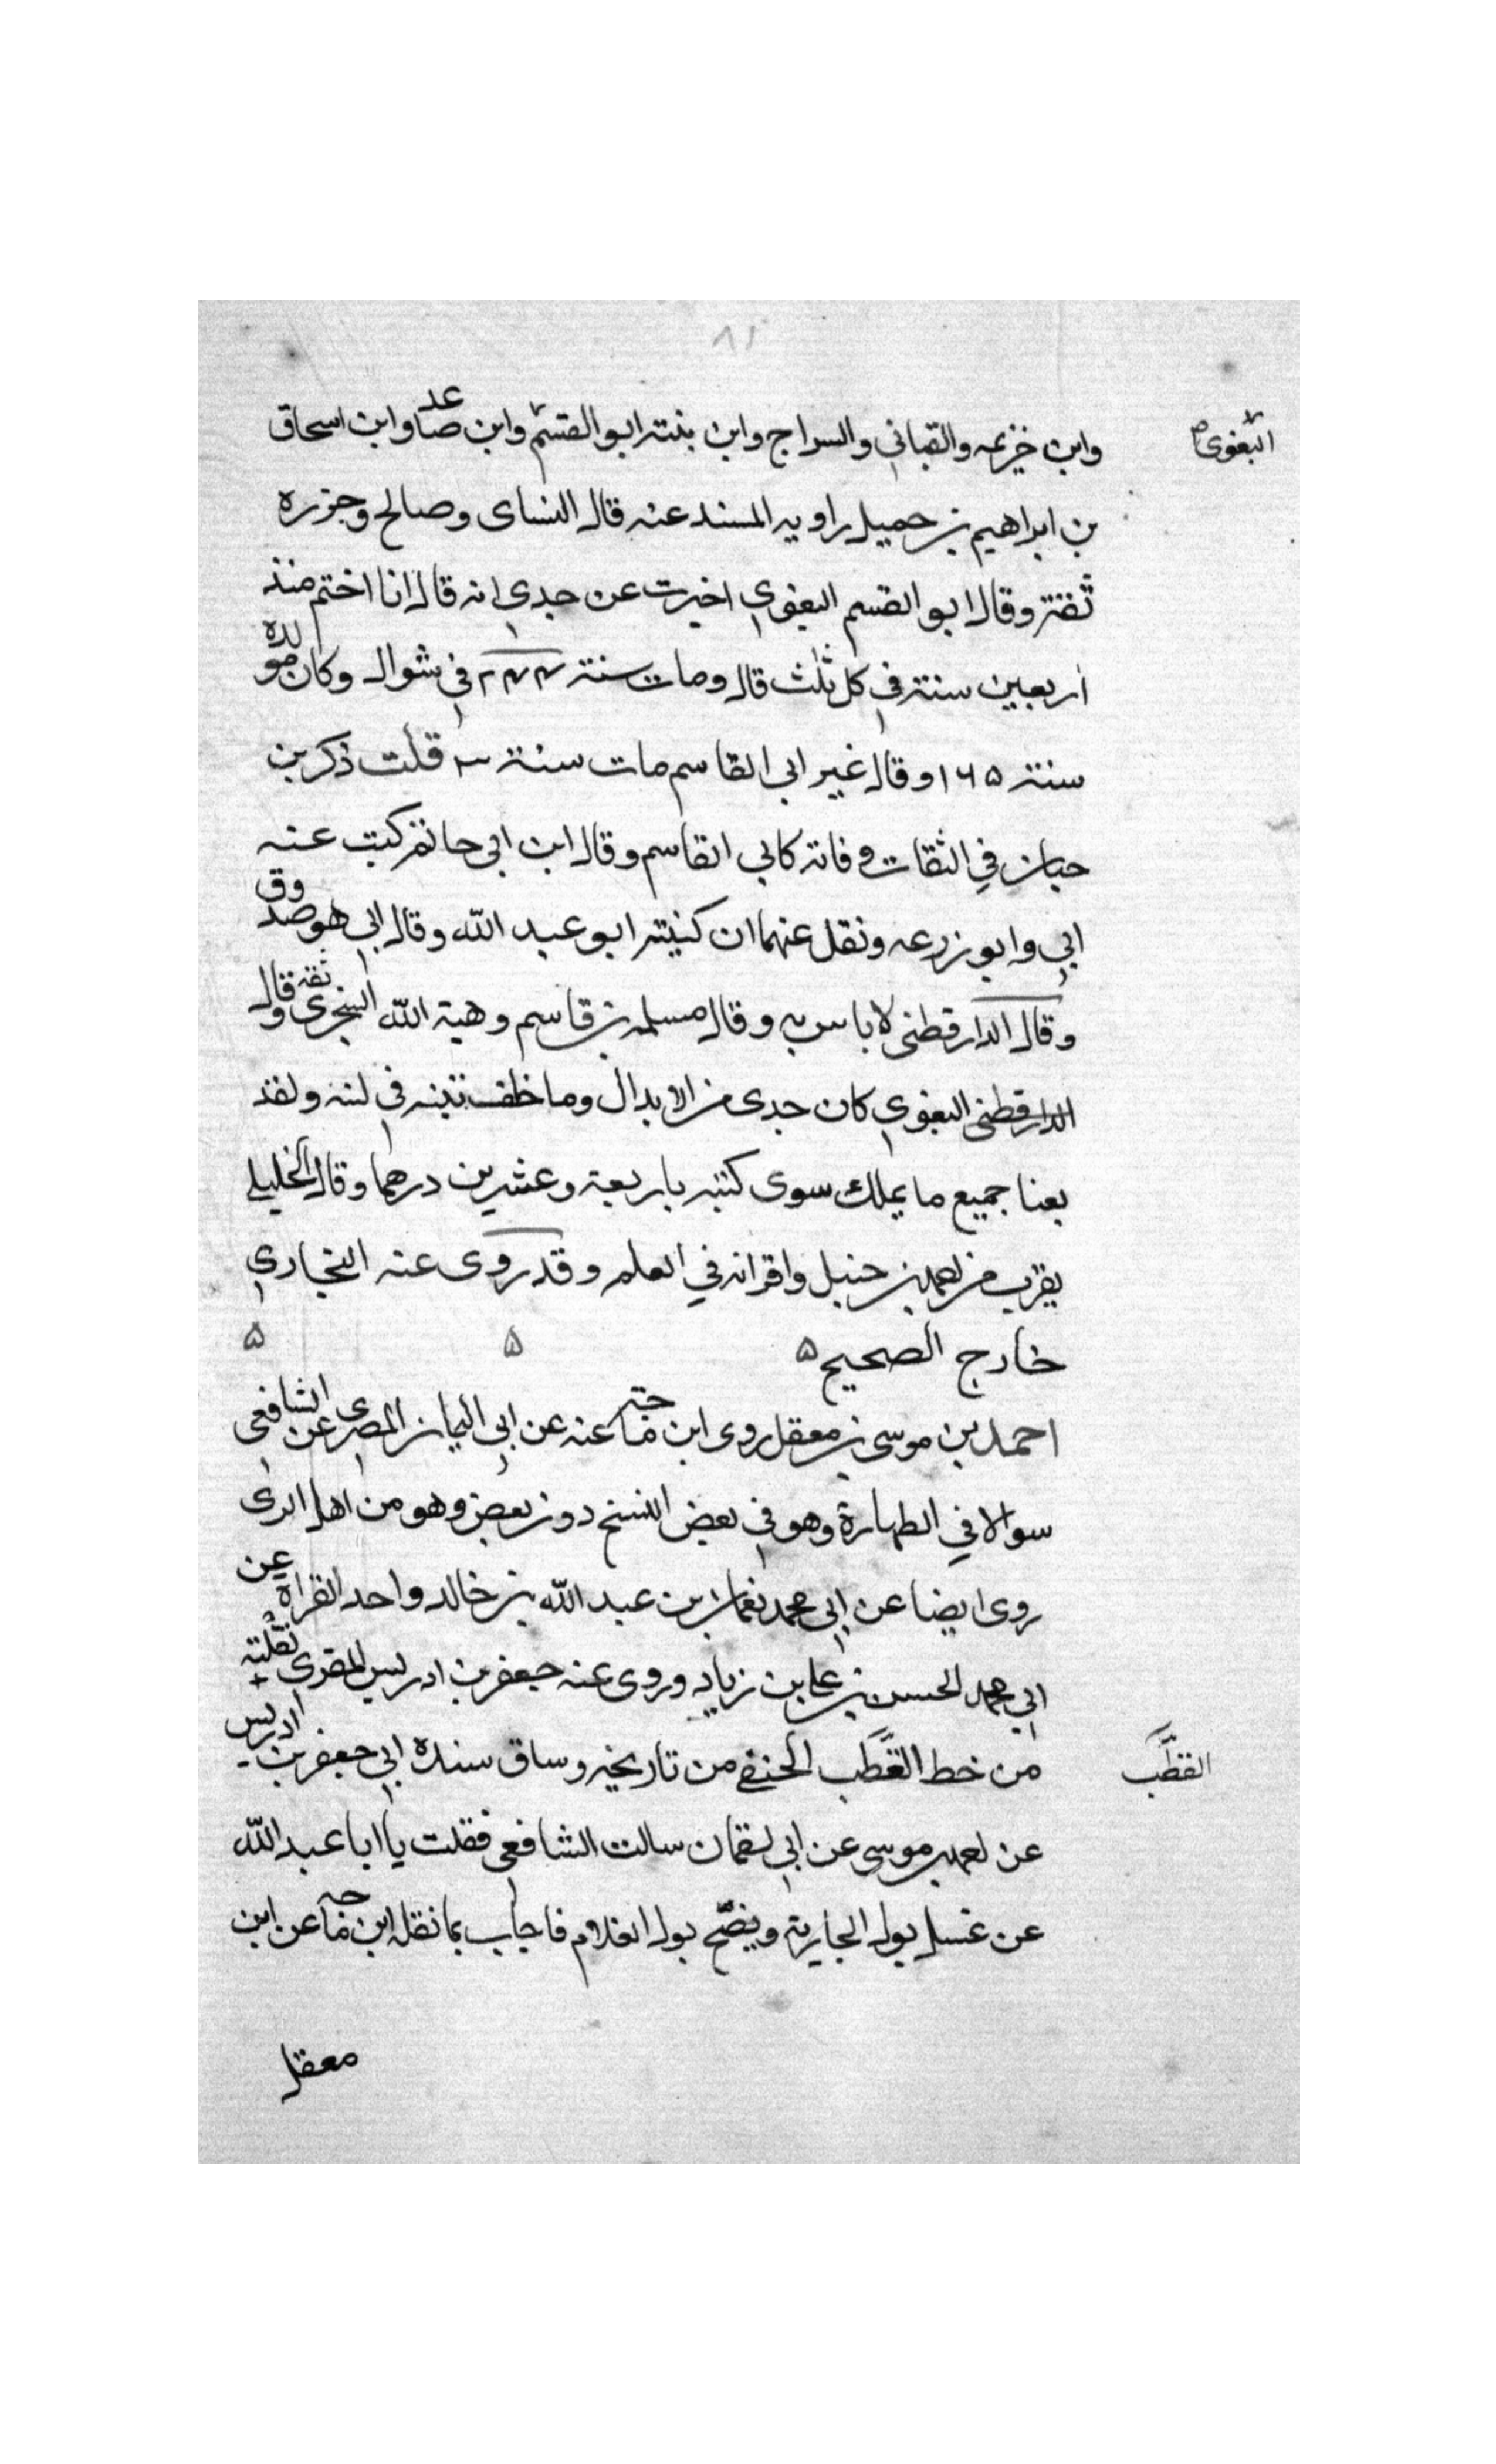 ٨١
وابن خزيمه والقباني والسراج وابن بنته ابو القسم وابن صاعد وابن اسحاق
البغوى
بن ابراهيم بن جميل راويه المسند عنه قال النساى وصالح وجزره
ثقة وقال ابو القسم البغوي اخبرت عن جدي انه قال انا اختم منذ
اربعين سنة في كل ثلث قال ومات سنة ٢٤٤ في شوال وكان مولده
سنة ١٦٥ وقال غير ابي القاسم مات سنة ٣ قلت ذكر بن
حبان في الثقات وفاته كابي القاسم وقال ابن ابي حاتم كتب عنه
ابي وابو زرعه ونقل عنهما ان كنيته ابو عبد الله وقال ابي هو صدوق
وقال الدارقطني لا باس به وقال مسلمه بن قاسم وهبة الله السجزى ثقة وقال
الدارقطني البغوي كان جدى من الابدال وما خلف تبنه في لبنه ولقد
بعنا جميع ما يملك سوى كتبه باربعة وعشرين درهما وقال الخليلي
يقرب من احمد بن حنبل واقرانه في العلم وقد روى عنه البخاري
خارج الصحيح ۵ ۵ ۵
احمد بن موسى بن معقل روى ابن ماجة عنه عن ابي اليمان المصرى عن الشافعي
سوالا في الطهارة وهو في بعض النسخ دون بعض وهو من اهل الرى
روى ايضا عن ابي محمد نعمان بن عبد الله بن خالد واحد القراة عن
ابي محمد الحسن بن علي بن زياد وروى عنه جعفر بن ادريس المقرى نقلته
من خط القطب الحنفي من تاريخه وساق سنده ابي جعفر بن ادريس
القطب
عن احمد بن موسى عن ابي لقمان سالت الشافعي فقلت يا ابا عبد الله
عن غسل بول الجارية وينضح بول الغلام فاجاب بما نقله ابن ماجه عن ابن
معقل